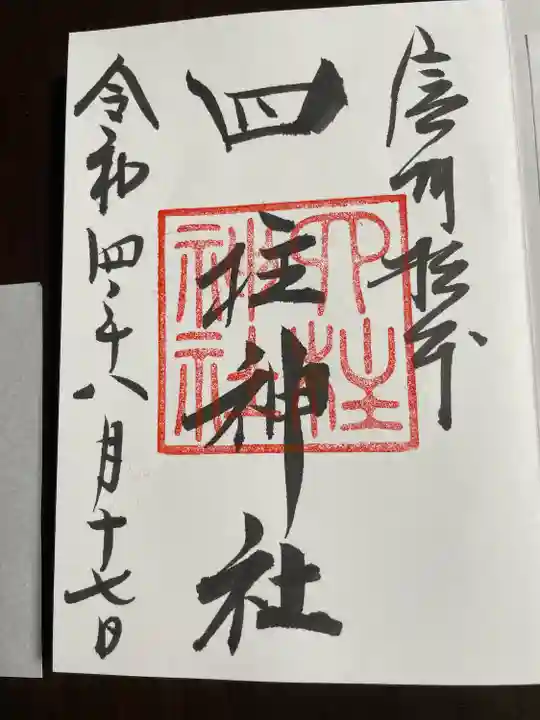 信州松本
四柱神社
四柱神社
令和四年八月十七日